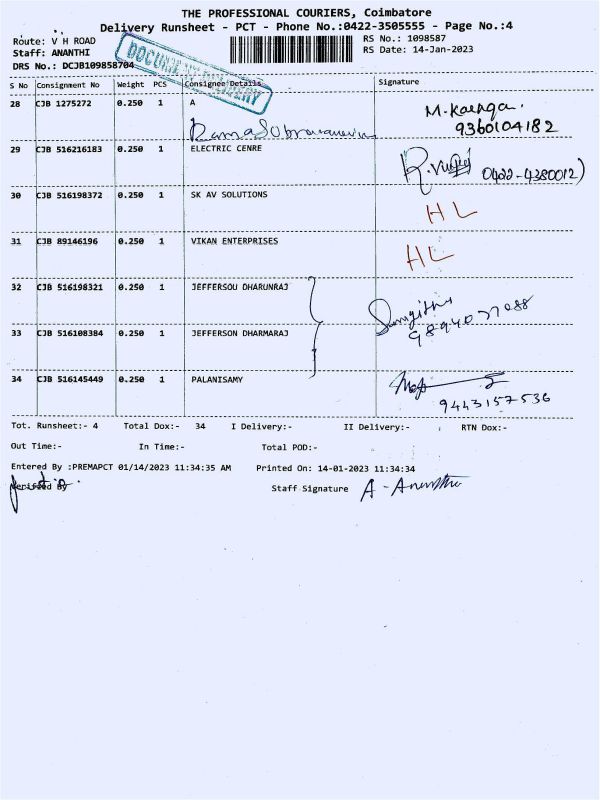 THE PROFESSIONAL COURIERS, Coimbatore
Delivery Runsheet - PCT - Phone No.:0422-3505555 - Page No.:4
Route: V H ROAD
RS No.: 1098587
Staff: ANANTHI
RS Date: 14-Jan-2023
DRS No.: DCJB109858704
DOCUMENT DELIVERY
S No Consignment No Weight PCS Consignee Details Signature
28 CJB 1275272 0.250 1 A
M. Kaenga.
9360104182
29 CJB 516216183 0.250 1 ELECTRIC CENRE
0422-4380012)
30 CJB 516198372 0.250 1 SK AV SOLUTIONS
HL
31 CJB 89146196 0.250 1 VIKAN ENTERPRISES
HL
32 CJB 516198321 0.250 1 JEFFERSOU DHARUNRAJ
9894037088
33 CJB 516108384 0.250 1 JEFFERSON DHARMARAJ
34 CJB 516145449 0.250 1 PALANISAMY
9443157536
Tot. Runsheet:- 4 Total Dox:- 34 I Delivery:- II Delivery:- RTN Dox:-
Out Time:- In Time:- Total POD:-
Entered By :PREMAPCT 01/14/2023 11:34:35 AM Printed On: 14-01-2023 11:34:34
Verified By Staff Signature